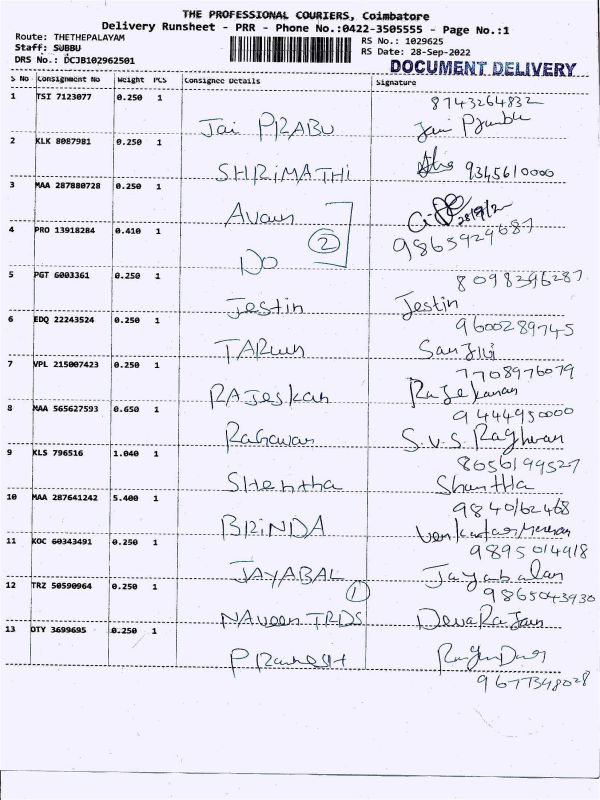 THE PROFESSIONAL COURIERS, Coimbatore
Delivery Runsheet - PRR - Phone No.:0422-3505555 - Page No.:1
Route: THETHEPALAYAM
RS No.: 1029625
Staff: SUBBU
RS Date: 28-Sep-2022
DRS No.: DCJB102962501
DOCUMENT DELIVERY
S No Consignment No Weight PCS Consignee Details Signature
1 TSI 7123077 0.250 1 8743264832
Jai PRABU Jai Prabhu
2 KLK 8087981 0.250 1
SHRiMATHi 9345610000
3 MAA 287880728 0.250 1
28/9/22
4 PRO 13918284 0.410 1 9865929687
2
DO
5 PGT 6003361 0.250 1 8098296287
Jestin Jestin
6 EDQ 22243524 0.250 1 9600289745
TARun
7 VPL 215007423 0.250 1 7708976079
RAJeskan
8 MAA 565627593 0.650 1 9444950000
Ragavan S.V.S. Raghvan
9 KLS 796516 1.040 1 8056199527
SHentha Shantha
10 MAA 287641242 5.400 1 9840162468
BRiNDA
11 KOC 60343491 0.250 1 9895014918
JAYABAL Jayabalan
1
12 TRZ 50590964 0.250 1 9865043930
NAveen TRDS DevaRajan
13 OTY 3699695 0.250 1
9677348028